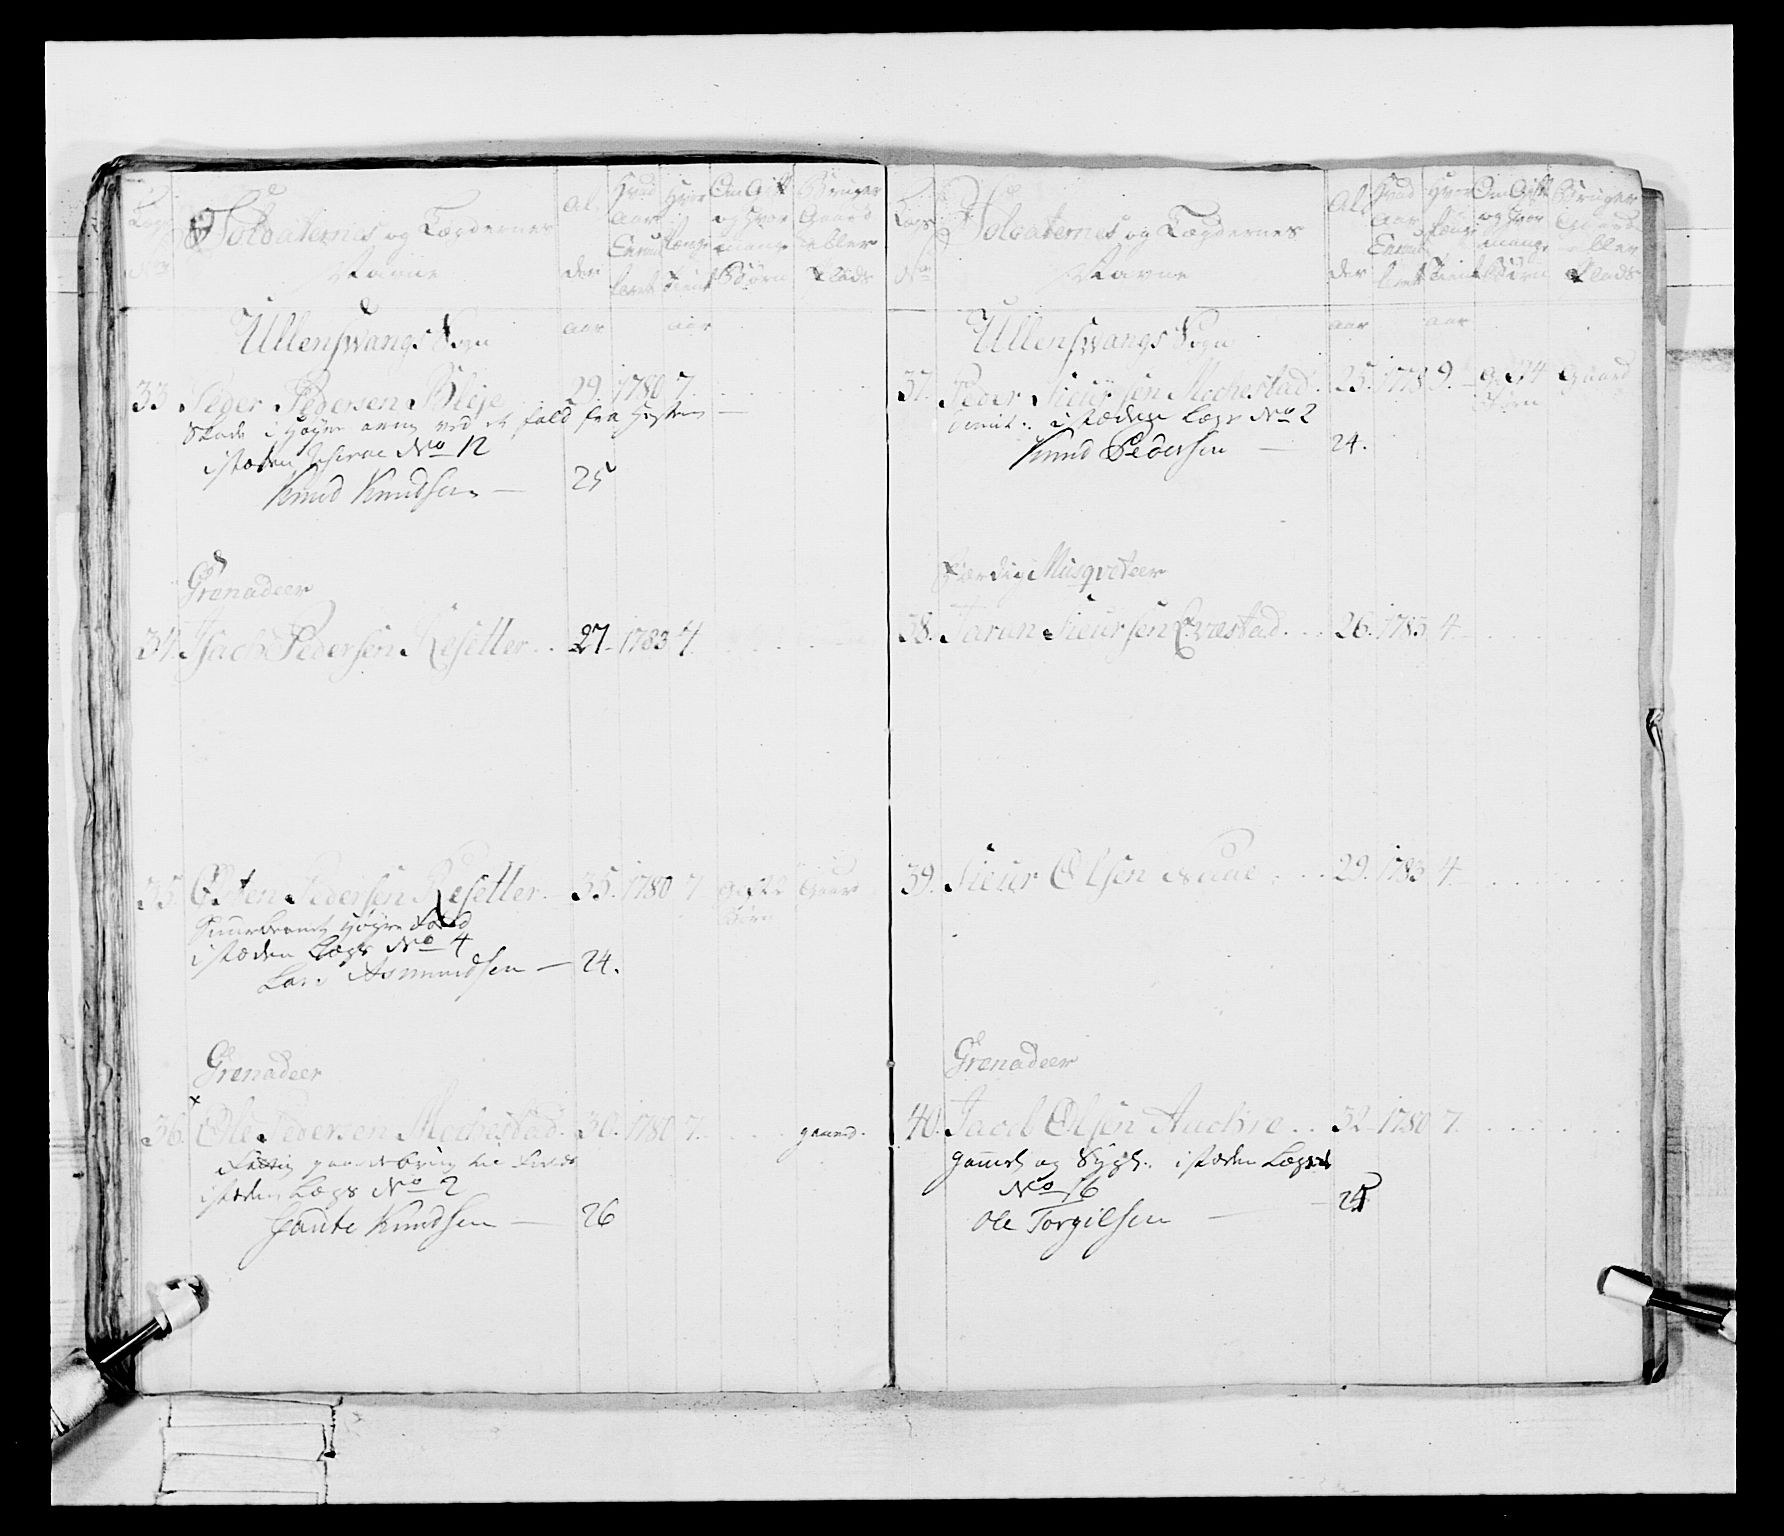 Lægs No
Soldaternes og Lægdernes Navne
Al der
Hvad Aar Enroulleret
Hvor længe tient
Om Gift og hvor mange Børn
Bruger Gaard eller Plads
Ullensvangs Sogn
aar
aar
33. Peder Pedersen Bleje 29. 1780 7.
Skade i Høyre arm ved et fald fra Hesten
isteden No 12
Knud Knudsen — 25
Grenadeer
34. Isach Pedersen Rejsetter . . 27. 1783 4.
35. Østen Pedersen Rejsetter. 35. 1780 7 Gift 2 Børn Gaard
Høyre
isteden Lægs No 4
Lars Asmundsen — 24.
Grenadeer
36. Ole Pedersen Mochestad. 30. 1780 7. gaard.
isteden Lægs No 2
Gaute Knudsen — 26
Lægs No
Soldaternes og Lægdernes Navne
Al der
Hvad Aar Enroulleret
Hvor længe tient
Om Gift og hvor mange Børn
Bruger Gaard eller Plads
Ullensvangs Sogn
aar
aar
37. Peder Siursen Mochestad. 25. 1778 9. Gift 4 Børn Gaard
isteden Lægs No 2
Knud Pedersen — 24.
Færdig Musqveteer
38. Jaran Siursen Qvæstad . . . 26. 1783. 4.
39. Siur Olsen Naae . . . 29. 1783 4.
Grenadeer
40. Jacob Olsen Aachre . . 32. 1780 7.
gammel og Sygl. isteden Lægs
No 16
Ole Torgilsen — 24